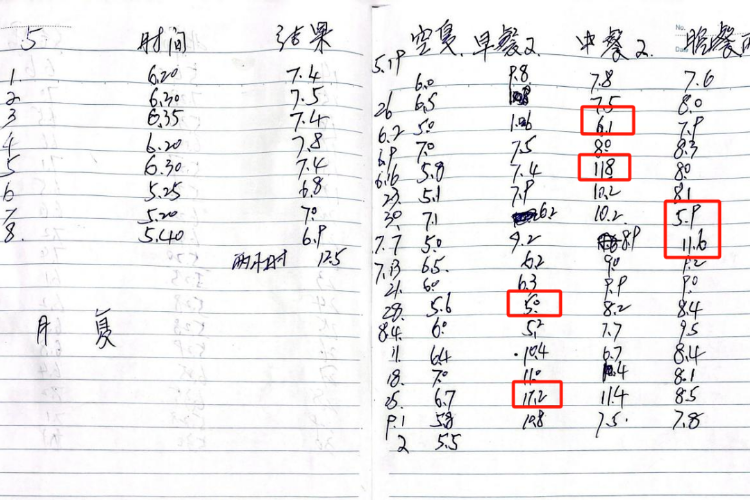 5 时间 结果
1. 6.20 7.4
2 6.30 7.5
3 6.35 7.4
4 6.20 7.8
5 6.30 7.4
6 5.25 6.8
7 5.20 7.0
8. 5.40 6.9
两小时 12.5
月
空复 早餐2 中餐2 晚餐
5.19 6.0 9.8 7.8 7.6
26 6.5 7.5 8.0
6.2 5.0 6.1 7.9
6.9 7.0 7.5 8.0 8.3
6.16 5.8 7.4 11.8 8.0
23 5.1 7.9 10.2 8.1
30 7.1 6.2 10.2 5.9
7.7 5.0 9.2 8.9 11.6
7.13 6.5 6.2 9.0 9.2
21 6.0 6.3 9.9 9.0
28 5.6 5.0 8.2 8.4
8.4 6.0 5.2 7.7 9.5
11 6.4 10.4 6.7 8.4
18 7.0 11.0 8.1
25 6.7 17.2 11.4 8.5
9.1 5.8 10.8 7.5 7.8
2 5.5